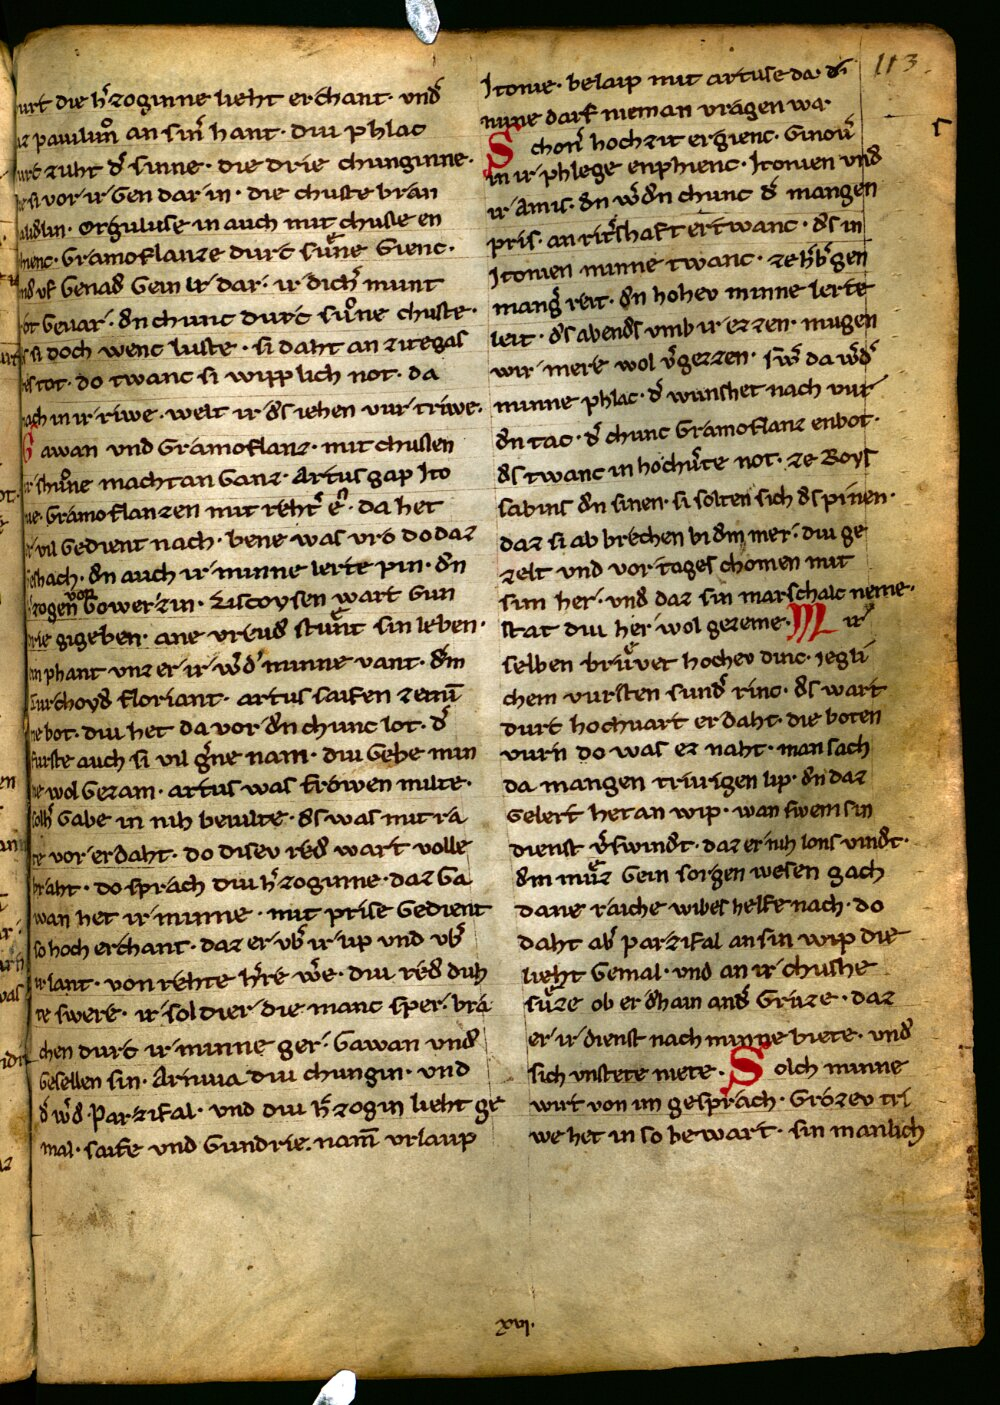 113.
urt die h̾zoginne lieht erchant· vnd̾
paulun̾ an sin̾ hant· diu phlac
zuht d̾ sinne· die drie chunginne·
si vor ir gen dar in· die chuste bran
Orguluse in auch mit chusse en
Gramoflanze durc sůne gienc·
vf genad̾ gein ir dar· ir dich̾ munt
geuar· d̾n chunc durc sůne chuste·
si doch wenc luste· si daht an zitegas
tot· do twanc si wipplich not· da
nach in ir riwe· welt ir d̾s iehen vur triwe·
Gawan vnd Gramoflanz· mit chussen
ir shůne machtan ganz· artus gap Ito
nie· Gramoflanzen mit reht̾ e̾· da het
er vil gedient nach· bene was vro do daz
geshach· d̾n auch ir minne lerte pin· d̾n
h̾zogen von Gowerzin· Liscoysen wart Gun
drie gigeben· ane vreud stůnt sin leben·
vnz er ir w̾d̾ minne vant· d̾m
turchoyd floriant· artus saifen zemū
ne bot· diu het da vor d̾n chunc lot· d̾
furste auch si vil g̾ne nam· diu gebe min
ne wol gezam· artus was frowen milte·
solh̾ gabe in nih beuilte· d̾s was mit ra
te vor erdaht· do disev red̾ wart volle
braht· do sprach diu h̾zoginne· daz Ga
wan het ir minne· mit prise gedient
so hoch erchant· daz er vb̾ ir lip vnd vb̾
ir lant· von rehte h̾re w̾e· diu red̾ duh
te swere· ir soldier die manc sper· bra
chen durc ir minne ger· Gawan vnd̾
gesellen sin· Arniua diu chungin· vnd
d̾ w̾d̾ Parzifal· vnd diu h̾zogin lieht ge
mal· saife vnd Gundrie· nam̄ vrlaup
Itonie· belaip mit artuse da· d̾
nune darf nieman vragen wa·
Schon̾ hochzit ergienc· Ginou̾
in ir phlege enphienc· Itonien vnd̾
ir amis· d̾n w̾d̾n chunc d̾ mangen
pris· an rit̾shaft ertwanc· d̾s in
Itonien minne twanc· ze h̾b̾gen
mang̾ reit· d̾n hohev minne lerte
leit· d̾s abend̾s vmb ir ezzen· mugen
wir mere wol v̾gezzen· sw̾ da w̾d̾
minne phlac· d̾ wunshet nach vur
d̾n tac· d̾ chunc Gramoflanz enbot·
d̾s twanc in hochu̾te not· ze Roys
sabins d̾n sinen· si solten sich d̾s pinen·
daz si ab brechen bi d̾m mer· diu ge
zelt vnd vor tages chomen mit
sim her· vnd daz sin marschalc neme·
stat diu her wol gezeme· M ir
selben brůuet hochev dinc· iegli
chem vursten sund̾ rinc· d̾s wart
durc hochuart erdaht· die boten
vurn do was ez naht· man sach
da mangen triurigen lip· d̾n daz
gelert hetan wip· wan swem sin
dienst v̾swind̾t· daz er nih lons vind̾t·
d̾m můz gein sorgen wesen gach
dane raiche wibes helfe nach· do
daht ab̾ parzifal an sin wip die
lieht gemal· vnd an ir chushe
sůze ob er d̾hain and̾ Grůze· daz
er ir dienst nach minne biete· vnd̾
sich vnstete niete· Solch minne
wirt von im gesprach· Grozev tri
we het in so bewart· sin manlich
xvi·